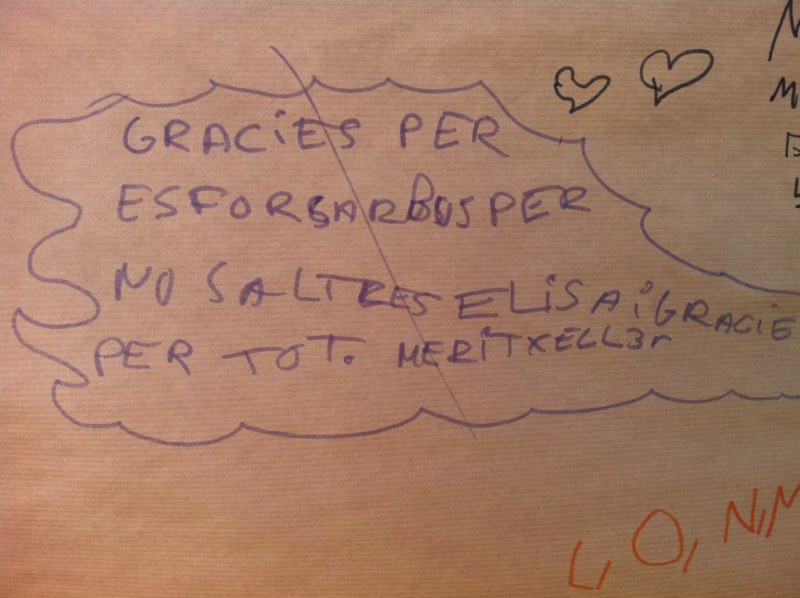 GRACiES PER
ESFORSARBOSPER
NO SALTRES ELiSA i GRACIE
PER TOT. MERiTXELL 3r
L, O, N, M